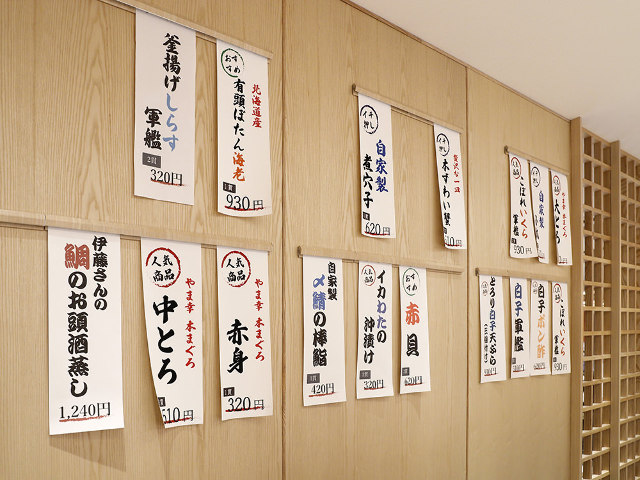 釜揚げしらす
軍艦
2貫
320円
おすすめ
北海道産
有頭ぼたん海老
1貫
930円
イチ押し
自家製
煮穴子
620円
イチ押し
贅沢な一皿
本ずわい蟹
こぼれいくら
軍艦
930円
自家製
やま幸 本まぐろ
大とろ
伊藤さんの
鯛のお頭酒蒸し
1,240円
人気商品
やま幸 本まぐろ
中とろ
510円
人気商品
やま幸 本まぐろ
赤身
1貫
320円
自家製
〆鯖の棒鮨
1貫
420円
人気商品
イカわたの
沖漬け
320円
おすすめ
赤貝
620円
とろり白子天ぷら
白子軍艦
白子ポン酢
こぼれいくら
軍艦
930円